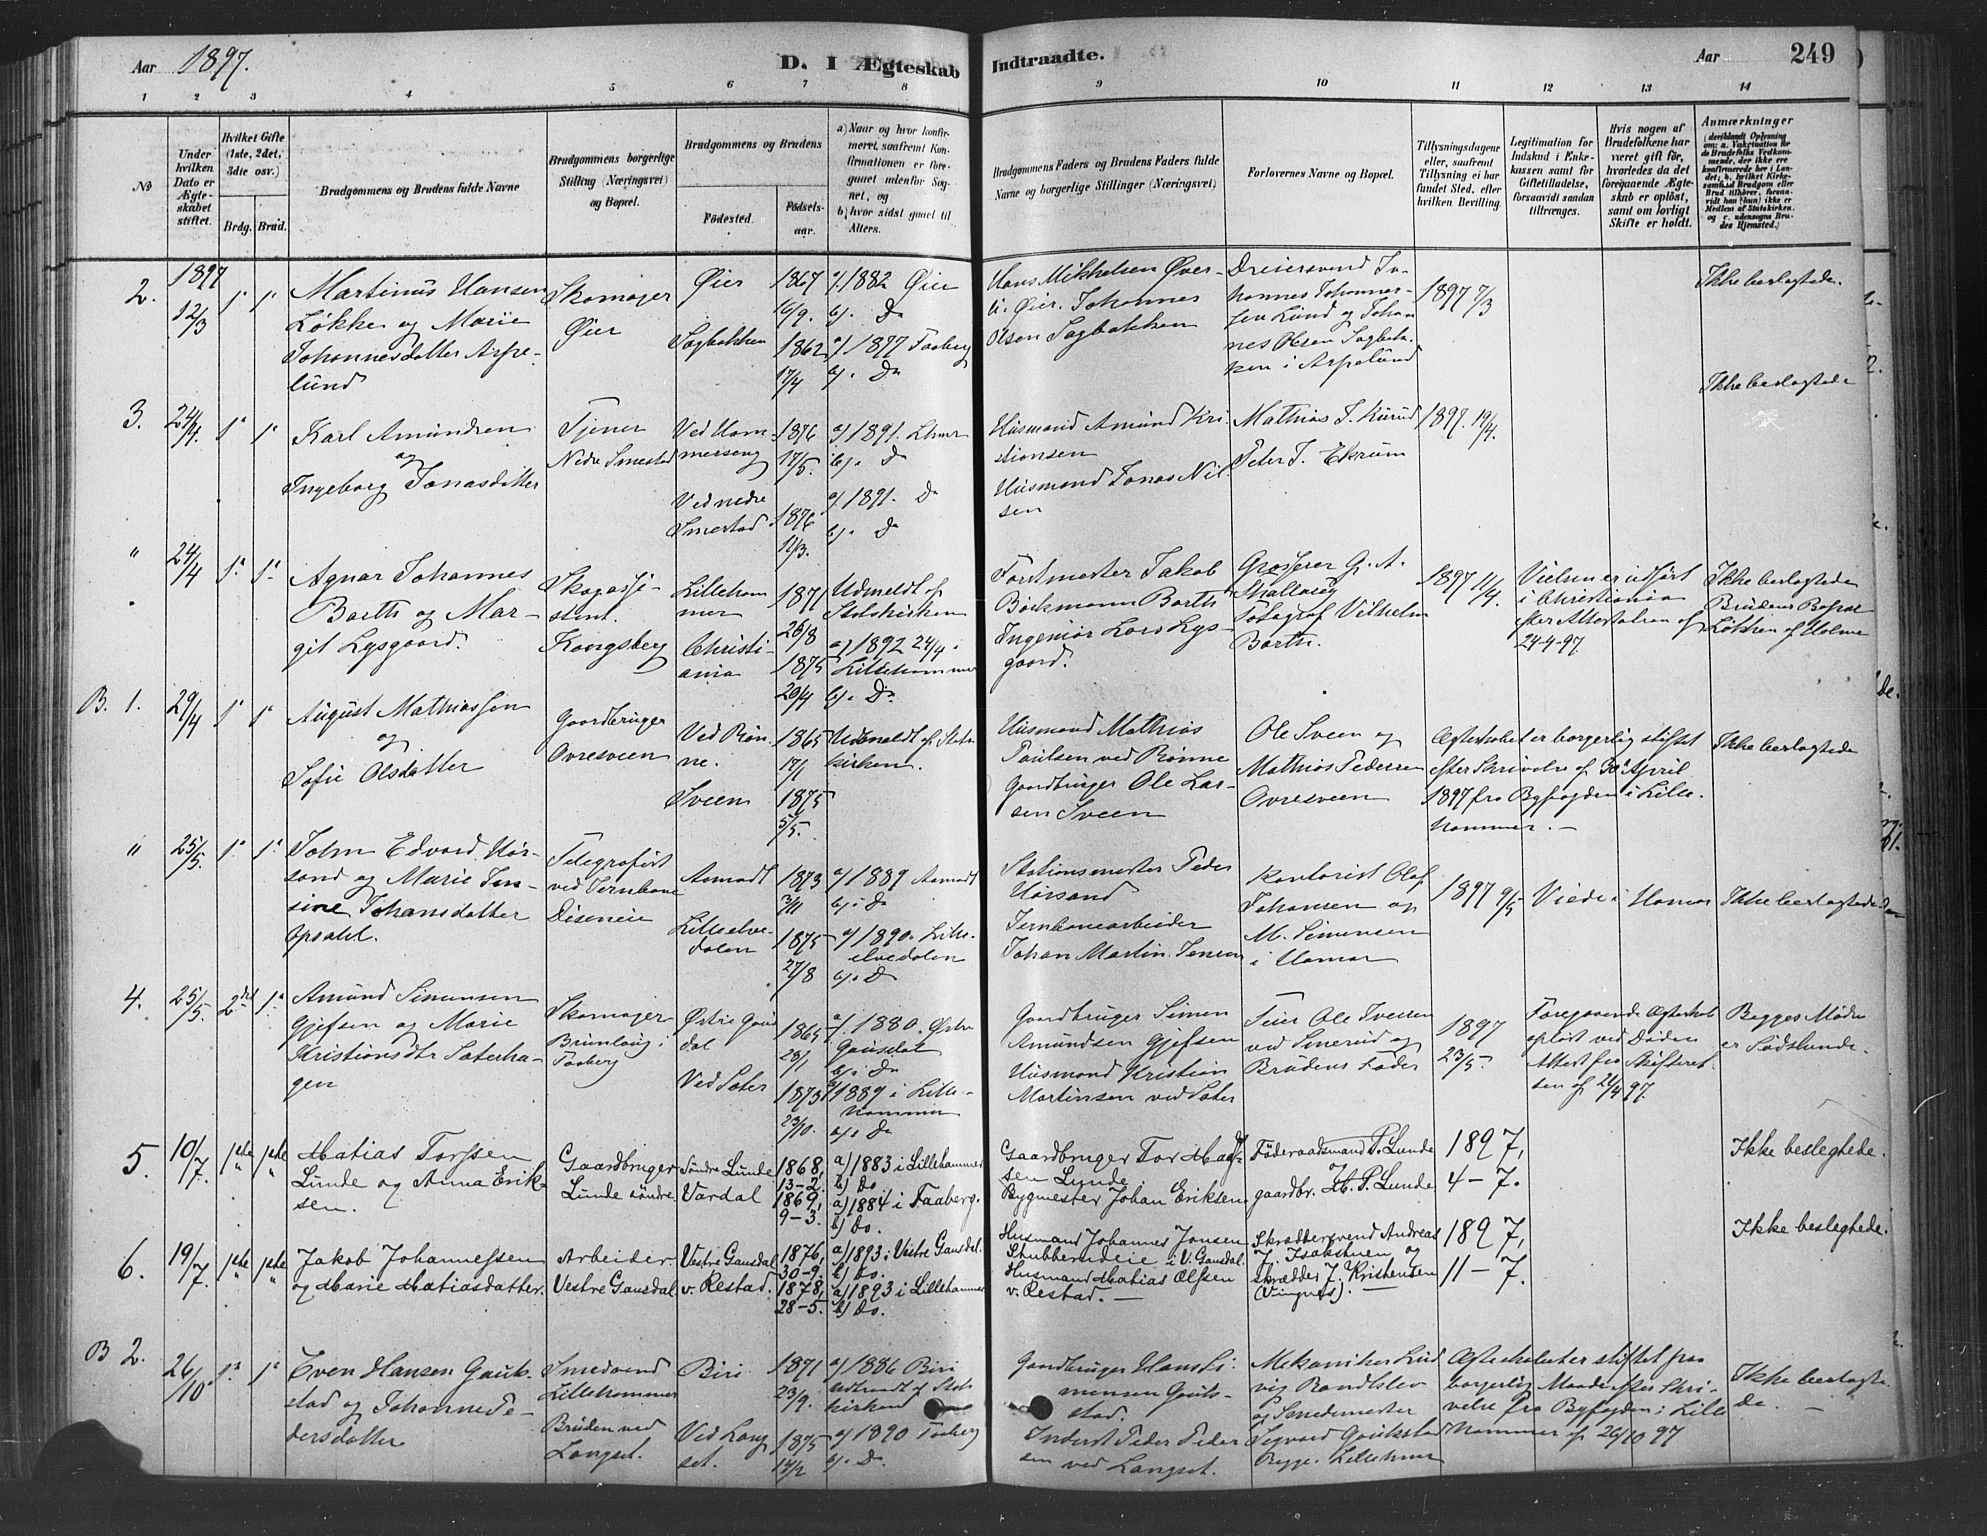 Aar 1897.
D. I Ægteskab Indtraadte.
Aar
249
1 2 3 4 5 6 7 8 9 10 11 12 13 14
No
Under hvilken Dato er Ægteskabet stiftet.
Hvilket Gifte (1ste, 2det, 3die osv.)
Brdg. Brud.
Brudgommens og Brudens fulde Navne
Brudgommens borgerlige Stilling (Næringsvei) og Bopæl.
Brudgommens og Brudens
Fødested.
Fødselsaar.
a) Naar og hvor konfirmeret, saafremt Konfirmationen er foregaaet udenfor Sognet, og
b) hvor sidst gaaet til Alters.
Brudgommens Faders og Brudens Faders fulde Navne og borgerlige Stillinger (Næringsvei)
Forlovernes Navne og Bopæl.
Tillysningsdagene eller, saafremt Tillysning ei har fundet Sted, efter hvilken Bevilling.
Legitimation for Indskud i Enkekassen samt for Giftetilladelse, forsaavidt saadan tiltrænges.
Hvis nogen af Brudefolkene har været gift før, hvorledes da det foregaaende Ægteskab er opløst, samt om lovligt Skifte er holdt.
Anmærkninger
(deriblandt Oplysning om: a. Vakcination for de Brudefolks Vedkommende, der ikke ere konfirmerede her i Landet; b. hvilket Kirkesamfund Brudgom eller Brud tilhører, forsaavidt han (hun) ikke er Medlem af Statskirken, og c. udensogns Brudes Hjemsted.)
2. 1897 12/3 1ª 1ª
Martinus Hansen
Løkke og Marie
Johannesdatter Aspelund
Skomager
Øier
Øier
Sagbakken
1867
16/9.
1862
17/4
a/. 1882 Øier
b/. Do
a/ 1877 Faaberg
b/. Do
Hans Mikkelsen Øverli Øier. Johannes
Olsen Sagbakken
Dreiersvend Johannes Johannessen Lund og Johannes Olsen Sagbakken i Aspelund
1897 7/3
Ikke beslægtede.
Ikke beslægtede
3. 24/4. 1ª 1ª
Karl Amundsen
og
Ingeborg Jonasdatter
Tjener
Nedre Smestad
Ved Hammerseng
Ved nedre
Smestad
1876
17/5.
1876
11/3.
a/ 1891. Lhmr
b/. Do
a/ 1891. Do
b/. Do
Husmand Amund Kristiansen
Husmand Jonas Nilsen
Mathias J. Kurud
Peter J. Ekrum
1897. 19/4.
" 24/4 1ª 1ª
Agnar Johannes
Barth og Margit Lysgaard.
Skogassistent.
Kongsberg
Lillehammer
Christiania
1871
26/8
1875
29/4
Udmeldt af
Statskirken
a/ 1892 24/4 i
Lillehammer
b/. Do.
Forstmester Jakob
Bøckmann Barth
Ingeniør Lars Lysgaard.
Grosserer G. A.
Fotograf Vilhelm
Barth.
1897 11/4.
Vielsen er udført
i Christiania
efter Attestation af
24-4-97.
Ikke beslægtede
Brudens Bopæl
Løkken af Holme
B. 1. 29/4 1ª 1ª
August Mathiassen
og
Sofie Olsdatter
Gaardbruger
Øvresveen
Ved Rønne.
Sveen
1865
17/1
1875
5/5.
Udmeldt af Statskirken.
Husmand Mathias
Paulsen ved Rønne
Gaardbruger Ole Larsen Sveen
Ole Sveen og
Mathias Pedersen
Øvresveen
Ægteskabet er borgerlig stiftet
efter Skrivelse af 30 April
1897 fra Byfogden i Lillehammer. —
Ikke beslægtede
" 25/5. 1ª 1ª
John Edvard Hørsand og Marie Jensine Johansdatter
Opsahl.
Telegrafist
ved Jernbane
Diseneie
Aamodt
Lilleelvedalen
1873
3/11
1875
27/8
a/ 1889 Aamodt
b/. Do
a/ 1890. Lilleelvedalen
b/. Do
Stationsmester Peder
Hørsand
Jernbanearbeider
Johan Martin Jensen
Kontorist Olaf
Johansen og
M. Simensen
i Hamar
1897 9/5
Viede i Hamar
Ikke beslægtede
4. 25/5. 2det 1ª
Amund Simensen
Gjefsen og Marie
Kristiansdtr Sæterhagen
Skomager
Brunlaug i
Faaberg
Østre Gausdal
Ved Sæter
1865
28/1
1873
23/10.
a/. 1880. Østre
Gausdal
b/. Do
a/ 1889 i Lillehammer
b/. Do
Gaardbruger Simen
Amundsen Gjefsen
Husmand Kristian
Martinsen ved Sæter
Feier Ole Iversen
ved Smerud og
Brudens Fader
1897
23/5.
Foregaaende Ægteskab
opløst ved Døden
Attest fra Skifteretten af 21/4 97.
Begges Mødre
er Sødskende.
5. 10/7. 1ste 1ste
Matias Torssen
Lunde og Anna Eriksen.
Gaardbruger
Lunde søndre
Søndre Lunde
Vardal
1868,
13-2.
1869,
9-3.
a) 1883 i Lillehammer
b) Do
a) 1884 i Faaberg.
b) Do.
Gaardbruger Tor Madssen Lunde
Bygmester Johan Eriksen
Føderaadsmand P. Lunde
gaardbr. H. P. Lunde
1897,
4-7.
Ikke beslegtede.
6. 19/7. 1ste 1ste
Jakob Johannessen
og Marie Matiasdatter.
Arbeider.
Vestre Gausdal
Vestre Gausdal
v. Restad.
1876,
30-9.
1878,
28-5.
a) 1893 i Vestre Gausdal.
b) Do.
a) 1893 i Lillehammer
b) Do.
Husmand Johannes Jonsen
Stubberudeie i V. Gausdal.
Husmand Matias Olssen
v. Restad. —
Skræddersvend Andreas
J. Isakstuen og
skrædder J. Kristensen
(Vingnes).
1897,
11-7.
Ikke beslegtede.
B 2. 26/10 1ª 1ª
Even Hansen Gaukstad og Johanne Pedersdatter
Smedsvend
Lillehammer
Bruden ved
Langset.
Biri
Ved Langset.
1871
23/9.
1875
14/2
a/ 1886 Biri
Udtraadt af Statskirken
a/ 1890 Faaberg
b/. Do.
Gaardbruger Hans Simensen Gaukstad.
Inderst Peder Pedersen ved Langset.
Mekaniker Ludvig Randklev
og Smedemester
Sigvard Gaukstad
Begge. Lillehammer
Ægteskabet er stiftet paa
borgerlig Maade efter Skrivelse fra Byfogden i Lillehammer af 26/10 97
Ikke beslægtede. —